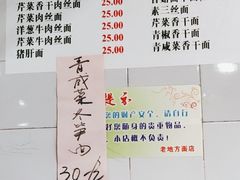 芹菜肉丝面 25.00
芹菜香干肉丝面 25.00
洋葱牛肉丝面 25.00
芹菜牛肉丝面 25.00
猪肝面 25.00
素三丝面
芹菜香干面
青椒香干面
青咸菜香干面
青咸菜冬笋面
30元
提示
您的财产安全,请自行
好您随身的贵重物品,
本店概不负责!
老地方面店